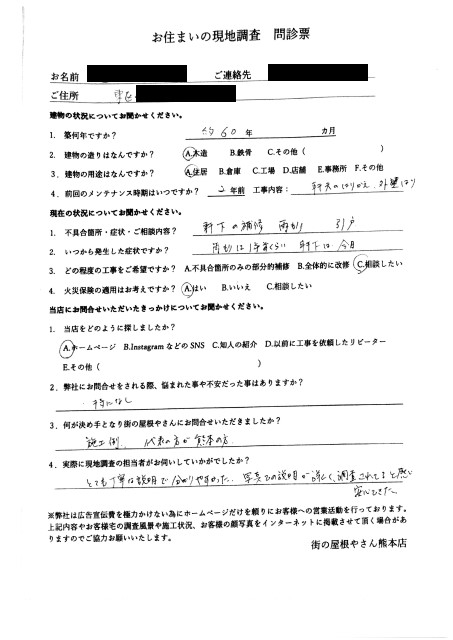 お住まいの現地調査 問診票
お名前 ご連絡先
ご住所
建物の状況についてお聞かせください。
1. 築何年ですか? 約60年 カ月
2. 建物の造りはなんですか? A.木造 B.鉄骨 C.その他( )
3. 建物の用途はなんですか? A.住居 B.倉庫 C.工場 D.店舗 E.事務所 F.その他
4. 前回のメンテナンス時期はいつですか? 2年前 工事内容: 軒天のはりかえ、外壁はり
現在の状況についてお聞かせください。
1. 不具合箇所・症状・ご相談内容? 軒下の補修 雨もり 引戸
2. いつから発生した症状ですか? 雨もりは1年くらい 軒下は今日
3. どの程度の工事をご希望ですか? A.不具合箇所のみの部分的補修 B.全体的に改修 C.相談したい
4. 火災保険の適用はお考えですか? A.はい B.いいえ C.相談したい
当店にお問合せいただいたきっかけについてお聞かせください。
1. 当店をどのように探しましたか?
A.ホームページ B.InstagramなどのSNS C.知人の紹介 D.以前に工事を依頼したリピーター
E.その他( )
2. 弊社にお問合せをされる際、悩まれた事や不安だった事はありますか?
・特になし
3. 何が決め手となり街の屋根やさんにお問合せいただきましたか?
施工例、代表の方が熊本の方
4. 実際に現地調査の担当者がお伺いしていかがでしたか?
とても丁寧な説明で分かりやすかった。写真での説明が詳しく、調査されてると思い
安心できた。
※弊社は広告宣伝費を極力かけない為にホームページだけを頼りにお客様への営業活動を行っております。
上記内容やお客様宅の調査風景や施工状況、お客様の顔写真をインターネットに掲載させて頂く場合があ
りますのでご協力お願いいたします。
街の屋根やさん熊本店